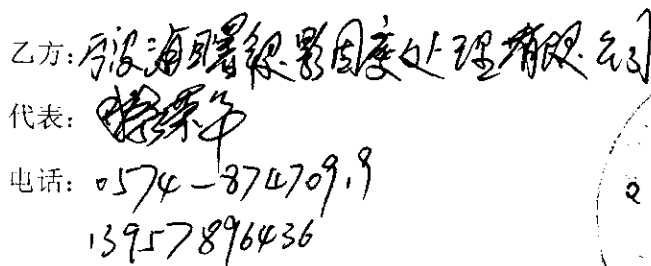 乙方:宁波海曙绿影固废处理有限公司
代表:
电话:0574-87470919
13957896436